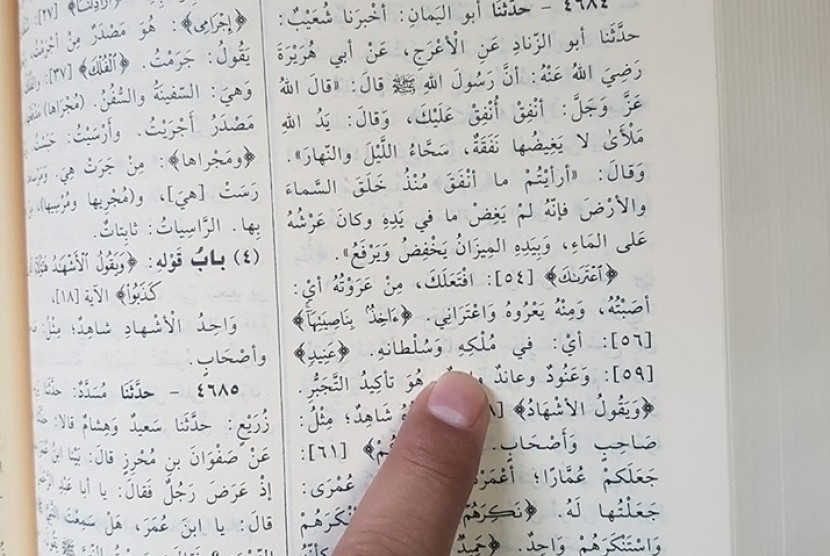 ٤٦٨٤ - حَدَّثَنَا أبو اليَمانِ: أخْبَرنا شُعَيْبٌ:
حدَّثَنا أبو الزّنادِ عَنِ الأعْرَجِ، عَنْ أبي هُرَيْرَةَ
رَضِيَ اللهُ عَنْهُ: أنَّ رَسُولَ اللهِ ﷺ قالَ: «قالَ اللهُ
عَزَّ وَجَلَّ: أنْفِقْ أُنْفِقْ عَلَيْكَ، وَقالَ: يَدُ اللهِ
مَلْأَى لا يَغِيضُها نَفَقَةٌ، سَحَّاءُ اللَّيْلَ والنَّهارَ».
وَقالَ: «أرأيْتُمْ ما أنْفَقَ مُنْذُ خَلَقَ السَّماءَ
والأرْضَ فإنَّهُ لمْ يَغِضْ ما في يَدِهِ وكانَ عَرْشُهُ
عَلى المَاءِ، وَبِيَدِهِ المِيزَانُ يَخْفِضُ وَيَرْفَعُ».
﴿اعْتَرَىٰكَ﴾ [٥٤]: افْتَعَلَكَ، مِنْ عَرَوْتُهُ أيْ:
أصَبْتُهُ، وَمِنْهُ يَعْرُوهُ وَاعْتَرَانِي. ﴿ءَاخِذٌۢ بِنَاصِيَتِهَآ﴾
[٥٦]: أيْ: في مُلْكِهِ وَسُلْطانِهِ. ﴿عَنِيدٍ﴾
[٥٩]: وَعَنُودٌ وعاندٌ هُوَ تأكِيدُ التَّجَبُّرِ.
﴿وَيَقُولُ الأشْهَادُ﴾ شَاهِدٌ؛ مِثْلُ:
صَاحِبٍ وَأصْحَابٍ. [٦١]:
جَعَلَكمْ عُمَّارًا؛ أعْمَرْ عُمْرَى:
جَعَلْتُها لَهُ. ﴿نَكِرَهُمْ
وَاسْتَنْكَرَهُمْ وَاحِدٌ. ﴿حَمِيدٌ
[٢٧]:
﴿إجْرَامِى﴾: هُوَ مَصْدَرٌ مِنْ أجْرَمْتُ،
يَقُولُ: جَرَمْتُ. ﴿الْفُلْكَ﴾ [٣٧]:
وَهِيَ: السَّفِينَةُ والسُّفُنُ. (مُجْرَاها)
مَصْدَرُ أجْرَيْتُ. وأرْسَيْتُ: حَبَسْتُ
﴿ومَجْراها﴾: مِنْ جَرَتْ هِيَ.
رَسَتْ [هِيَ]، و(مُجْرِيها ومُرْسِيها)
بِها. الرَّاسِيَاتُ: ثابِتاتٌ.
(٤) بابُ قَوْلِهِ: ﴿وَيَقُولُ الْأَشْهَٰدُ
كَذَبُوا﴾ الآية [١٨]،
وَاحِدُ الْأشْهادِ شاهِدٌ؛ مِثْلُ:
وأصْحَابٍ.
٤٦٨٥ - حدَّثَنا مُسَدَّدٌ:
زُرَيْعٍ: حدَّثَنا سَعِيدٌ وهِشامٌ قالا:
عَنْ صَفْوَانَ بنِ مُحْرِزٍ قالَ: بَيْنا
إذْ عَرَضَ رَجُلٌ فَقالَ: يا أبا عَبْدِ
قالَ: يا ابنَ عُمَرَ، هَلْ سَمِعْتَ